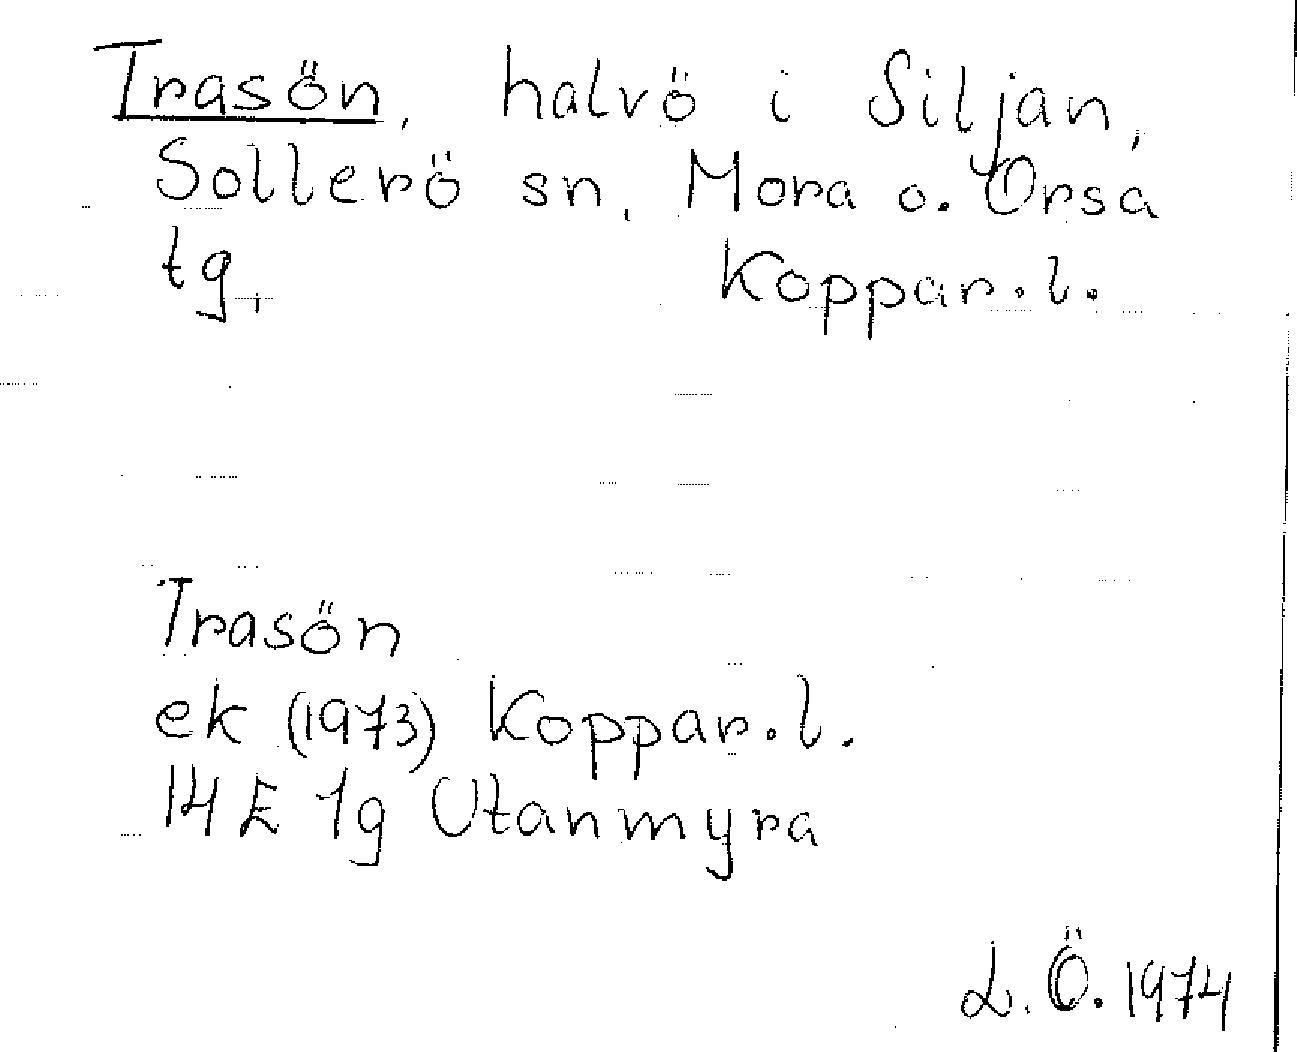 Trasön, halvö i Siljan,
Sollerö sn, Mora o. Orsa
tg, Koppar.l.
Trasön
ek (1973) Koppar.l.
14 E 1g Utanmyra
L.Ö. 1974